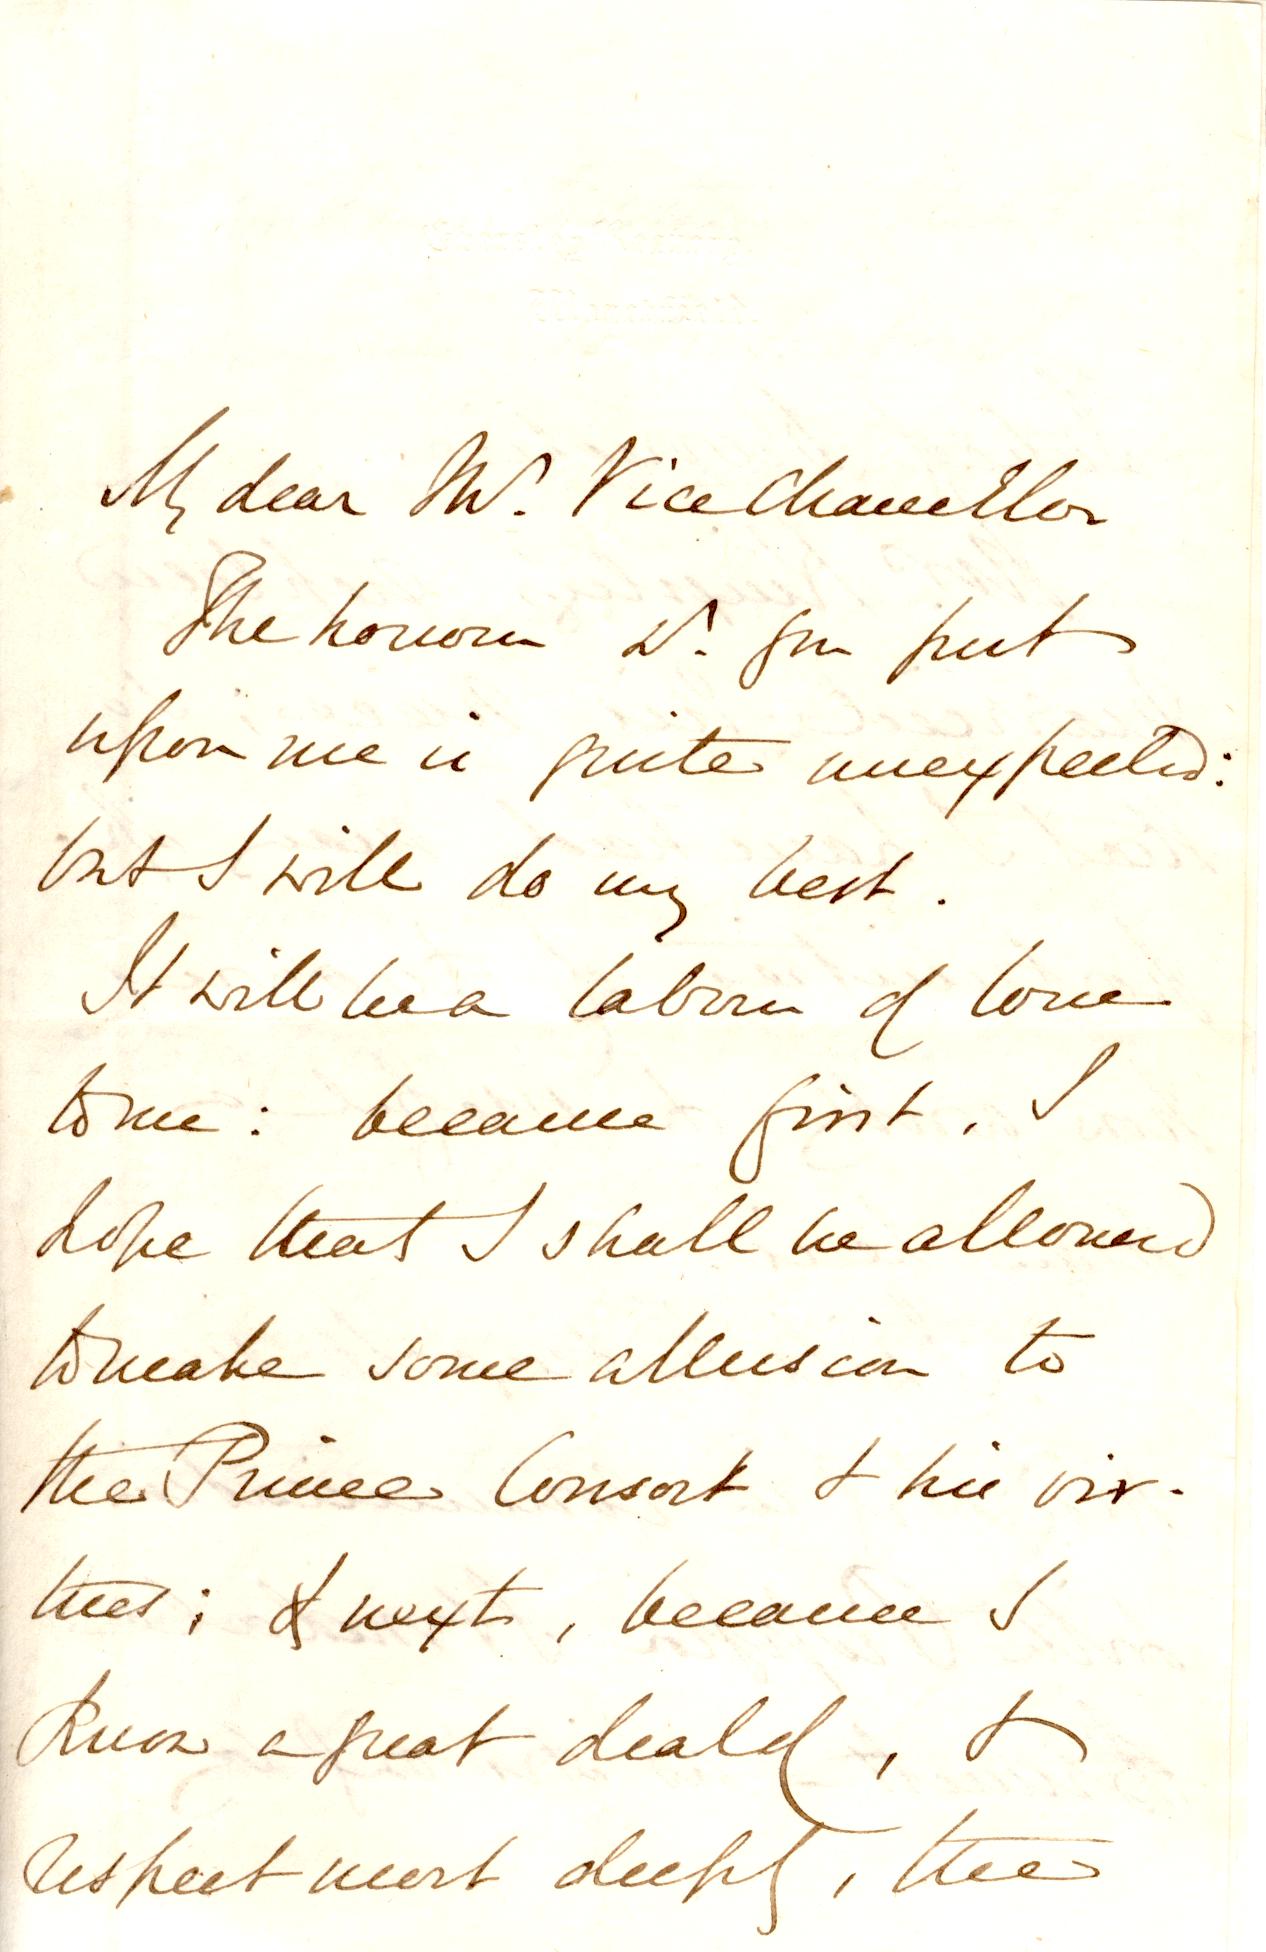 My dear Mr. Vice Chancellor
The honour wh. you put
upon me is quite unexpected:
but I will do my best.
It will be a labour of love
to me: because first, I
hope that I shall be allowed
to make some allusion to
the Prince Consort & his vir-
tues; & next, because I
know a great deal of, &
respect most deeply, the